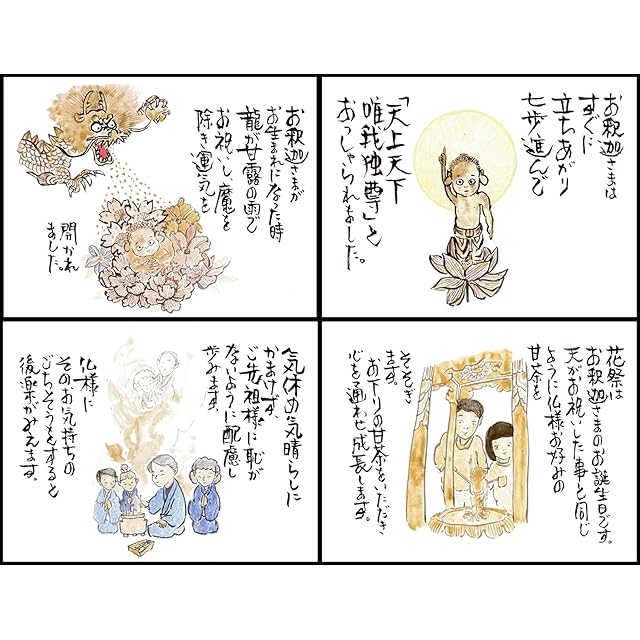 お釈迦さまは
すぐに
立ちあがり
七歩進んで
「天上天下
唯我独尊」と
おっしゃられました。
お釈迦さまが
お生まれになった時
龍が甘露の雨で
お祝いし魔を
除き運気を
開かれ
ました。
花祭は
お釈迦さまのお誕生日です。
天がお祝いした事と同じ
ように仏様お好みの
甘茶を
そそぎ
ます。
お下りの甘茶をいただき
心を潤わせ成長します。
気休め気晴らしに
かまけず、
ご先祖様に恥が
ないように配慮し
歩みます。
仏様に
そのお気持ちの
ごちそうをすると
後楽がみえます。